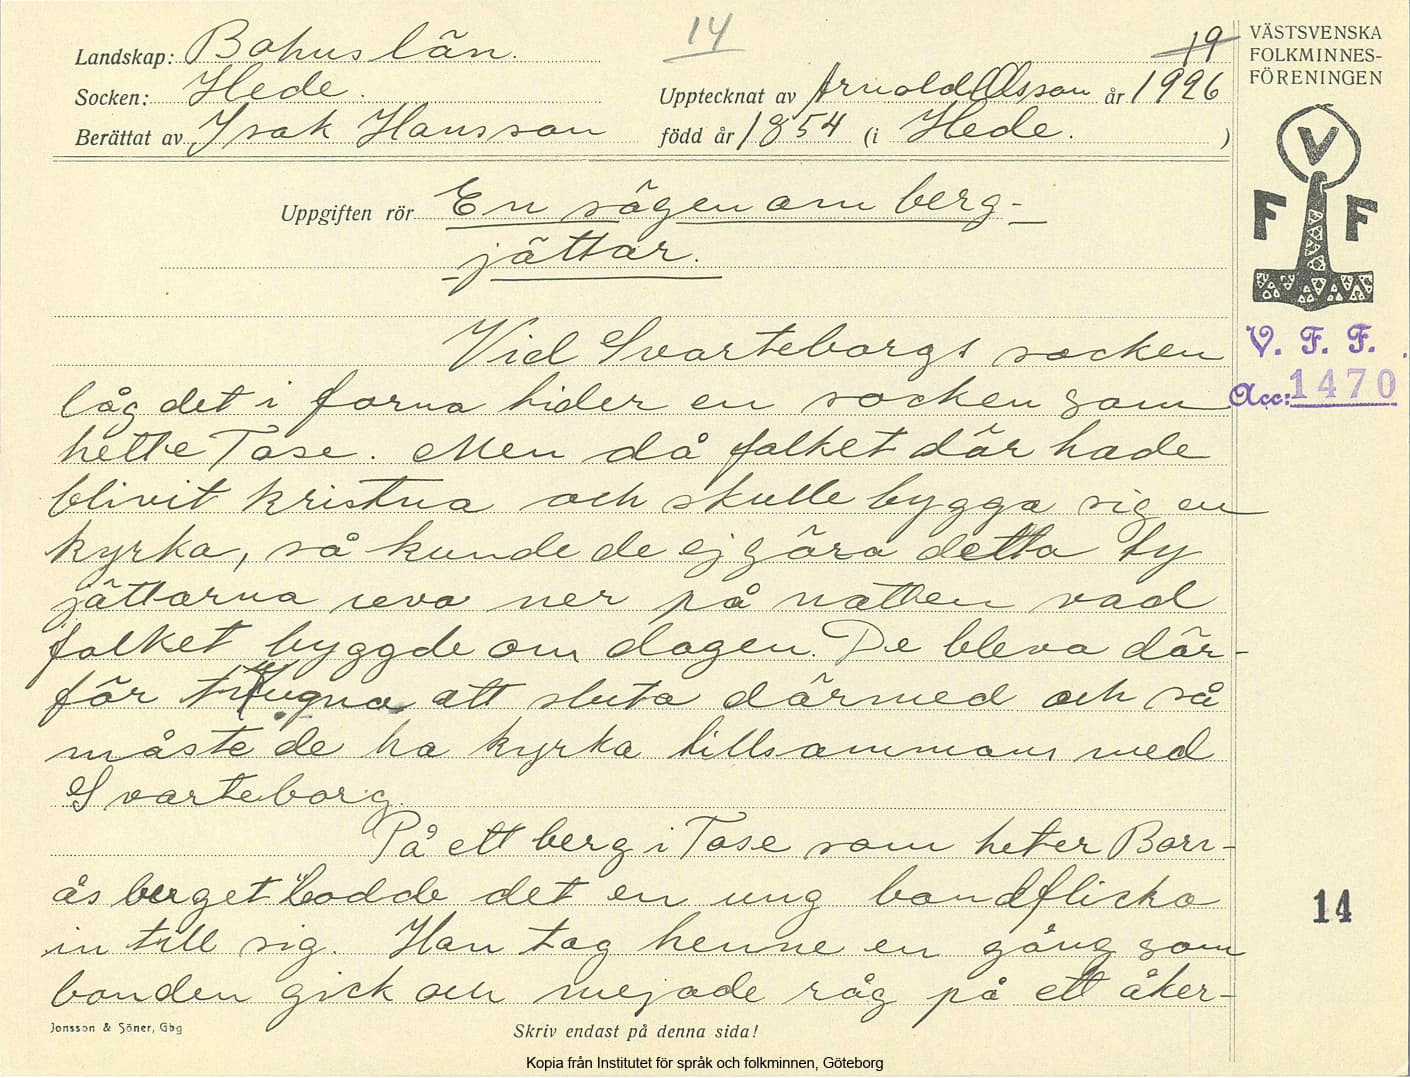 14
19
Landskap: Bohuslän.
Socken: Hede.
Upptecknat av Arnold Olsson år 1926
Berättat av Isak Hansson född år 1854 (i Hede. )
Uppgiften rör En sägen om berg-
jättar.
Vid Svarteborgs socken
låg det i forna tider en socken som
hette Tose. Men då folket där hade
blivit kristna och skulle bygga sig en
kyrka, så kunde de ej göra detta ty
jättarna revo ner på natten vad
folket byggde om dagen. De blevo där-
för tvugna att sluta därmed och så
måste de ha kyrka tillsammans med
Svarteborg.
På ett berg i Tose som heter Born-
ås berget lodde det en ung bondflicka
in till sig. Han tog henne en gång som
bonden gick och mejade råg på ett åker-
VÄSTSVENSKA
FOLKMINNES-
FÖRENINGEN
V
F F
V. F. F.
Acc: 1470
14
Jonsson & Söner, Gbg
Skriv endast på denna sida!
Kopia från Institutet för språk och folkminnen, Göteborg